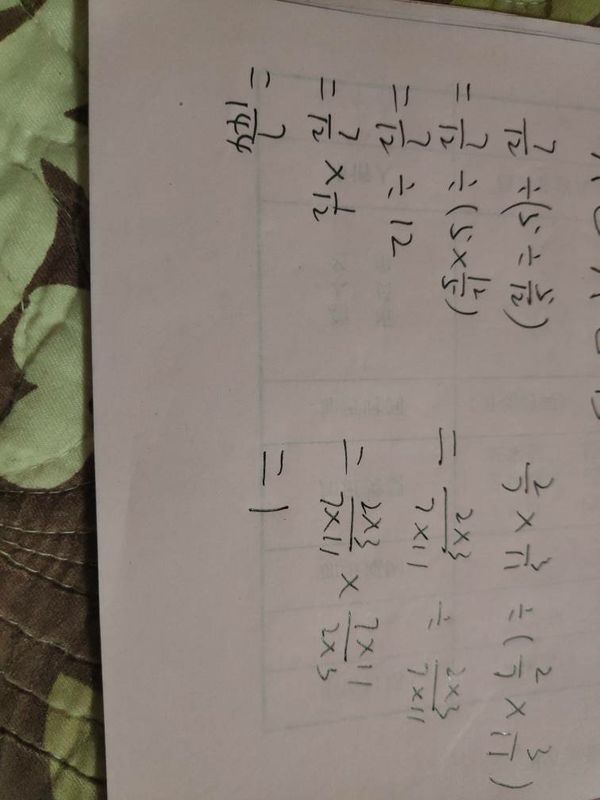 7/12 ÷ (5 ÷ 5/12)
= 7/12 ÷ (5 × 12/5)
= 7/12 ÷ 12
= 7/12 × 1/12
= 7/144
2/7 × 3/11 ÷ (2/7 × 3/11)
= 2×3/7×11 ÷ 2×3/7×11
= 2×3/7×11 × 7×11/2×3
= 1